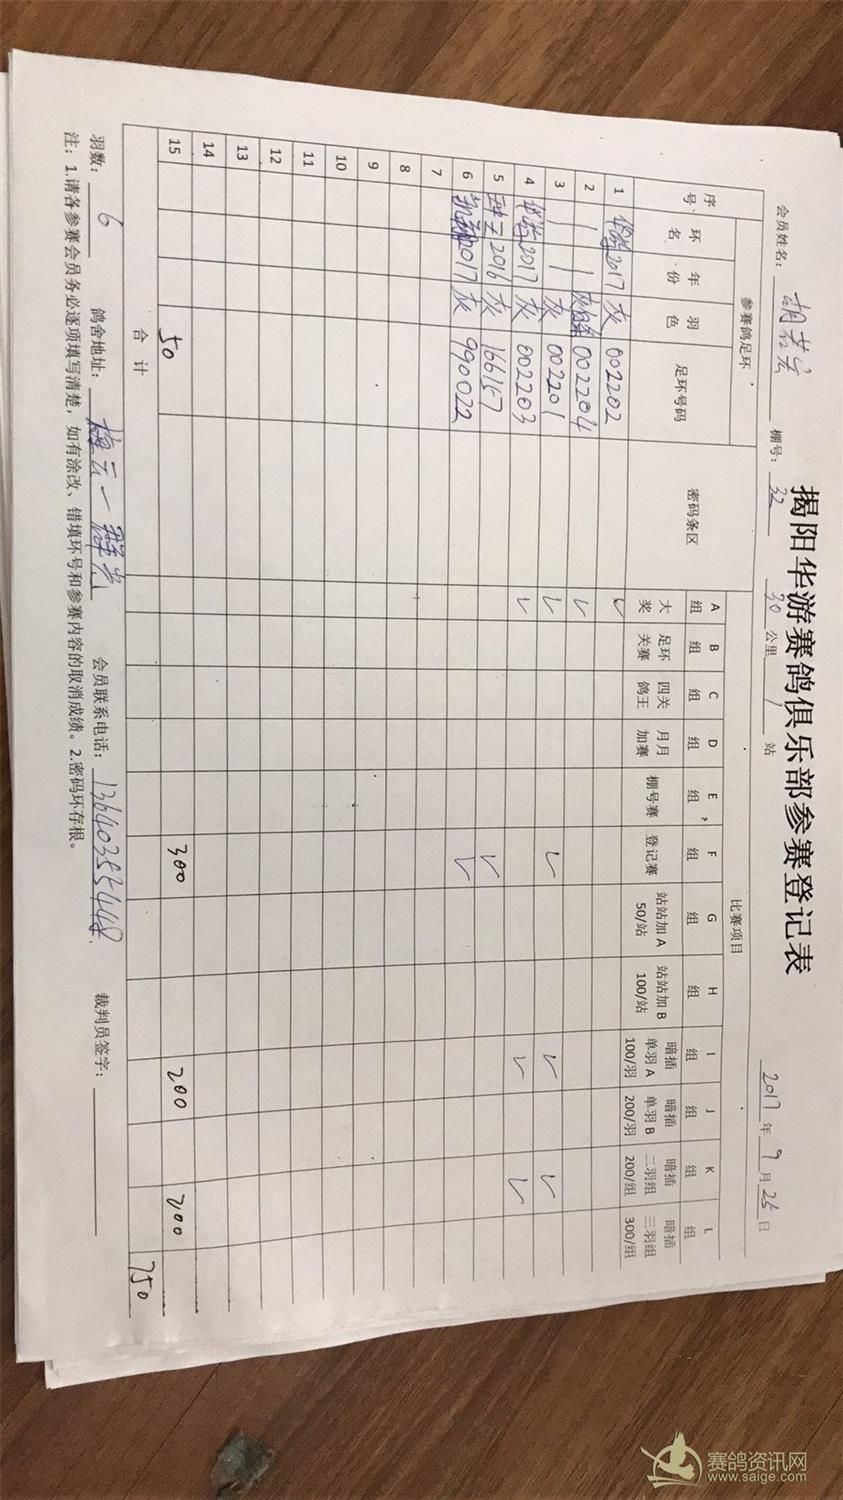 揭阳华游赛鸽俱乐部参赛登记表
2017年9月25日
会员姓名: 胡若宏 棚号: 32 30公里 1站
序号 参赛鸽足环 密码条区 比赛项目
环名 年份 羽色 足环号码 A组 B组 C组 D组 E组 F组 G组 H组 I组 J组 K组 L组
大奖 足环关赛 四关鸽王 月月加赛 棚号赛 登记赛 站站加A 50/站 站站加B 100/站 暗插单羽A 100/羽 暗插单羽B 200/羽 暗插二羽组 200/组 暗插三羽组 300/组
1 华游 2017 灰 002202 ✓
2 002204 ✓
3 灰 002201 ✓ ✓ ✓ ✓
4 华游 2017 灰 002203 ✓ ✓ ✓
5 2016 灰 166157 ✓
6 2017 灰 990022 ✓
7
8
9
10
11
12
13
14
15 50 300 200 200
合计 750
羽数: 6 鸽舍地址: 梅云一群光 会员联系电话: 13640355448. 裁判员签字:
注: 1.请各参赛会员务必逐项填写清楚, 如有涂改、错填环号和参赛内容的取消成绩。2.密码环存根。
赛鸽资讯网
www.saige.com